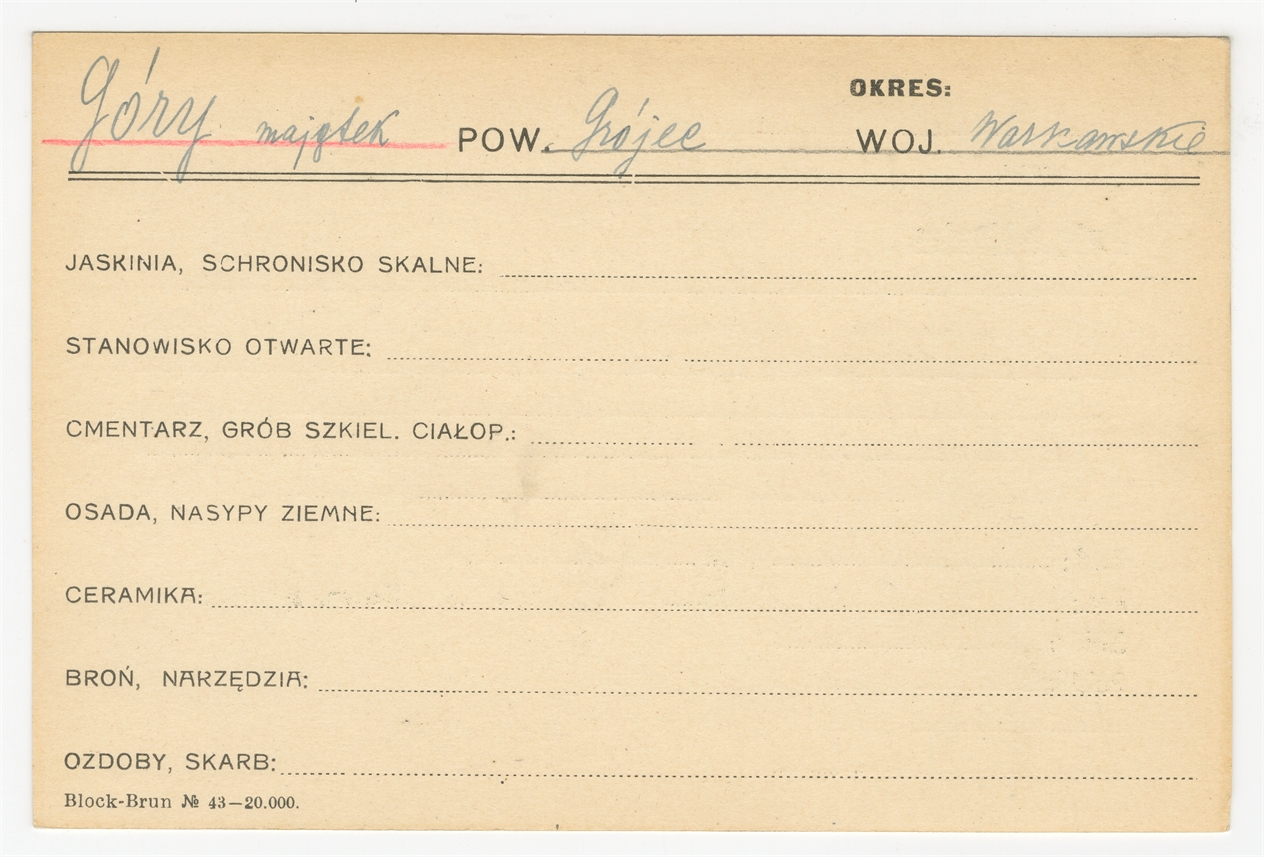 OKRES:
Góry majątek POW. Grójec WOJ. Warszawskie
JASKINIA, SCHRONISKO SKALNE:
STANOWISKO OTWARTE:
CMENTARZ, GRÓB SZKIEL. CIAŁOP.:
OSADA, NASYPY ZIEMNE:
CERAMIKA:
BROŃ, NARZĘDZIA:
OZDOBY, SKARB:
Block-Brun № 43—20.000.